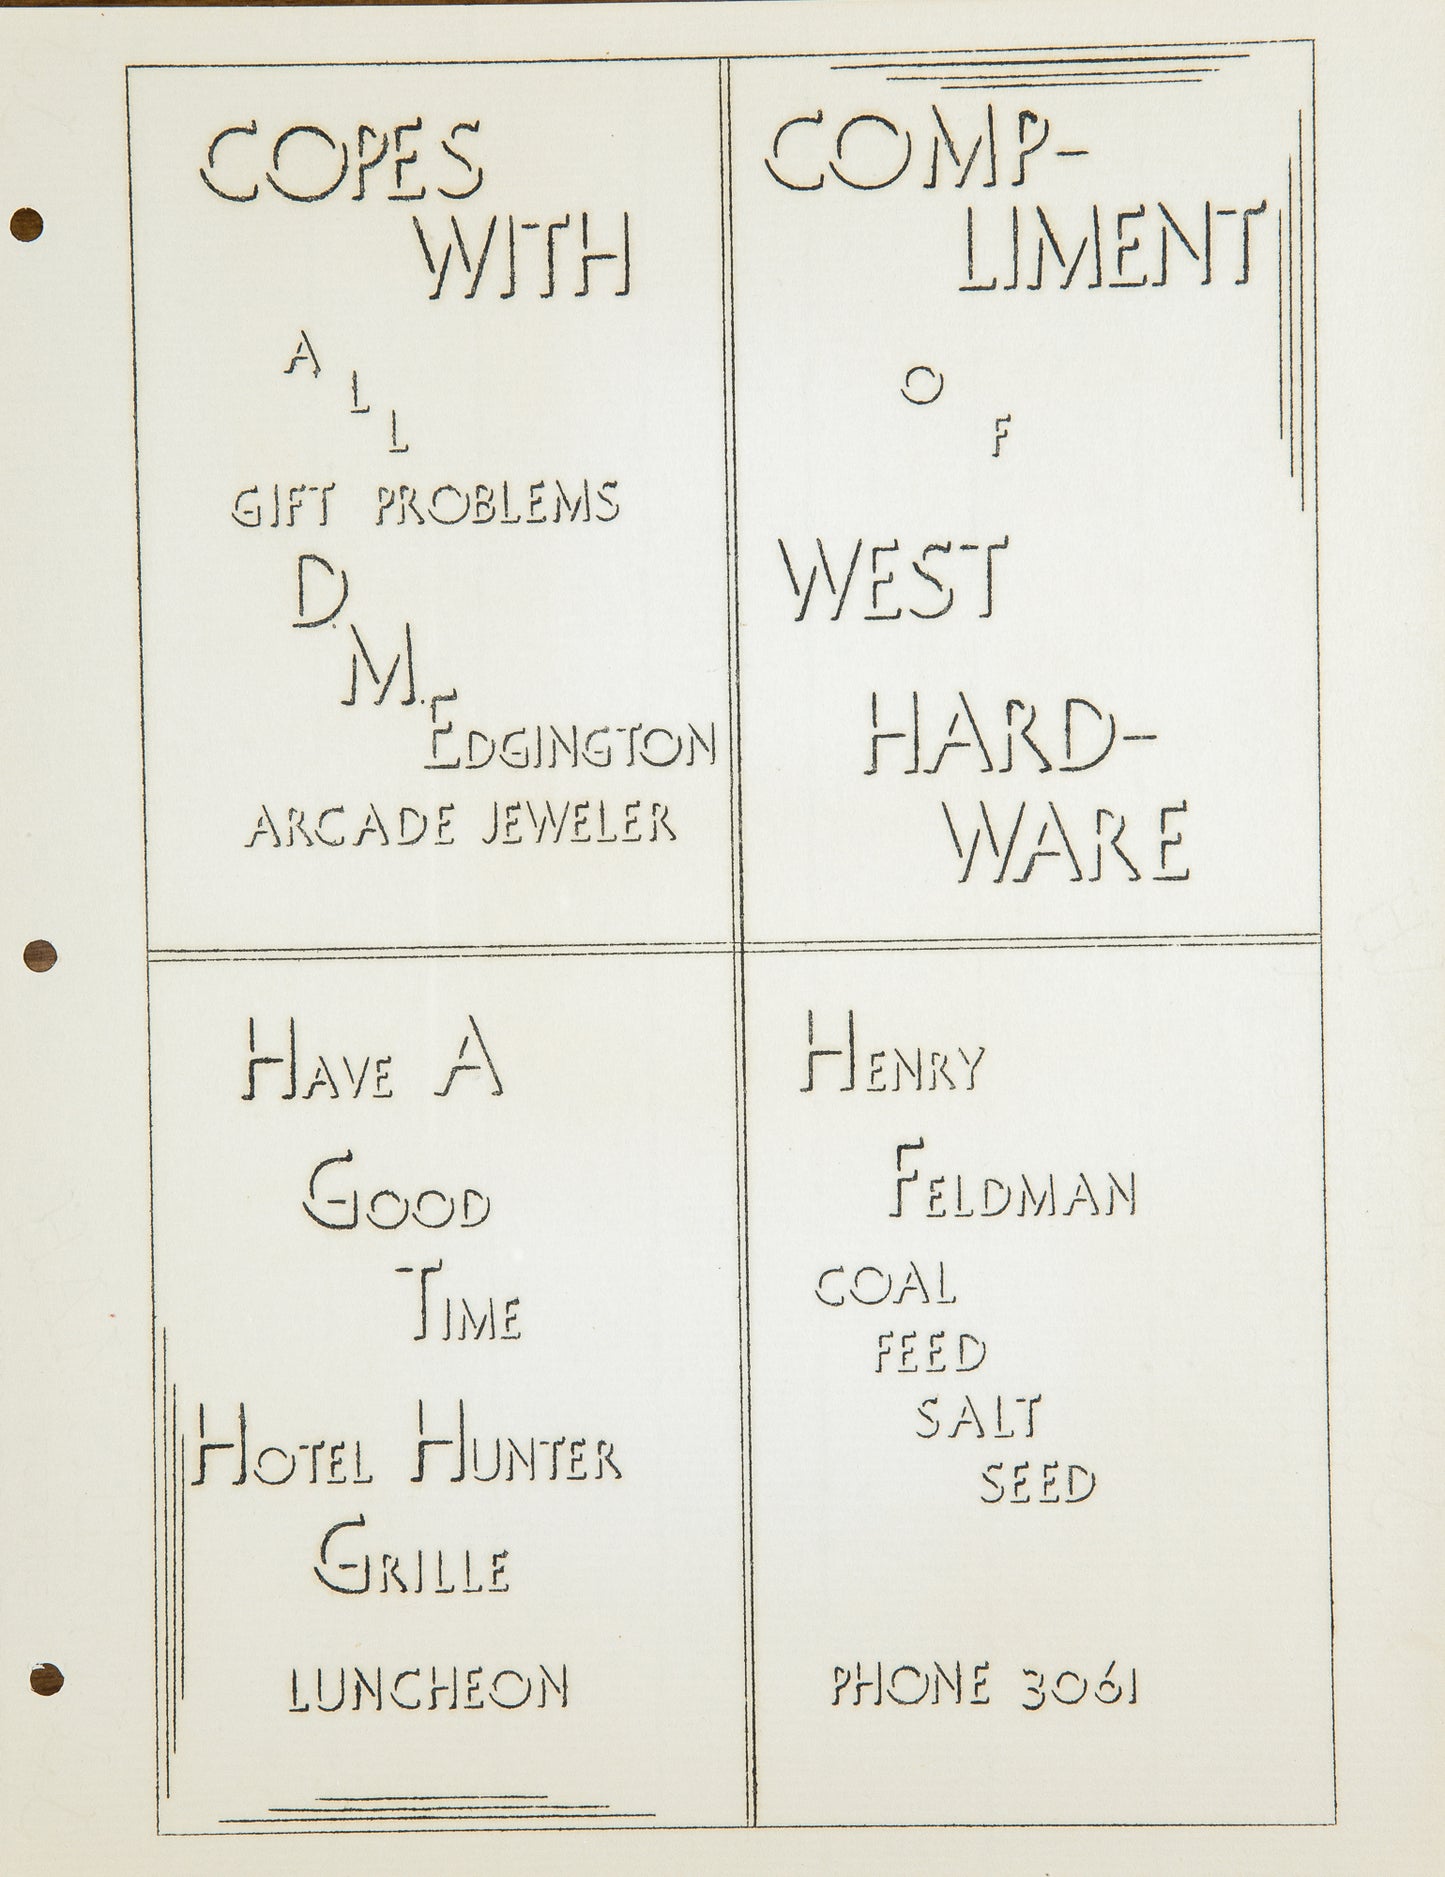 COPES
WITH
ALL
GIFT PROBLEMS
D.
M.
EDGINGTON
ARCADE JEWELER
COMP-
LIMENT
OF
WEST
HARD-
WARE
HAVE A
GOOD
TIME
HOTEL HUNTER
GRILLE
LUNCHEON
HENRY
FELDMAN
COAL
FEED
SALT
SEED
PHONE 3061